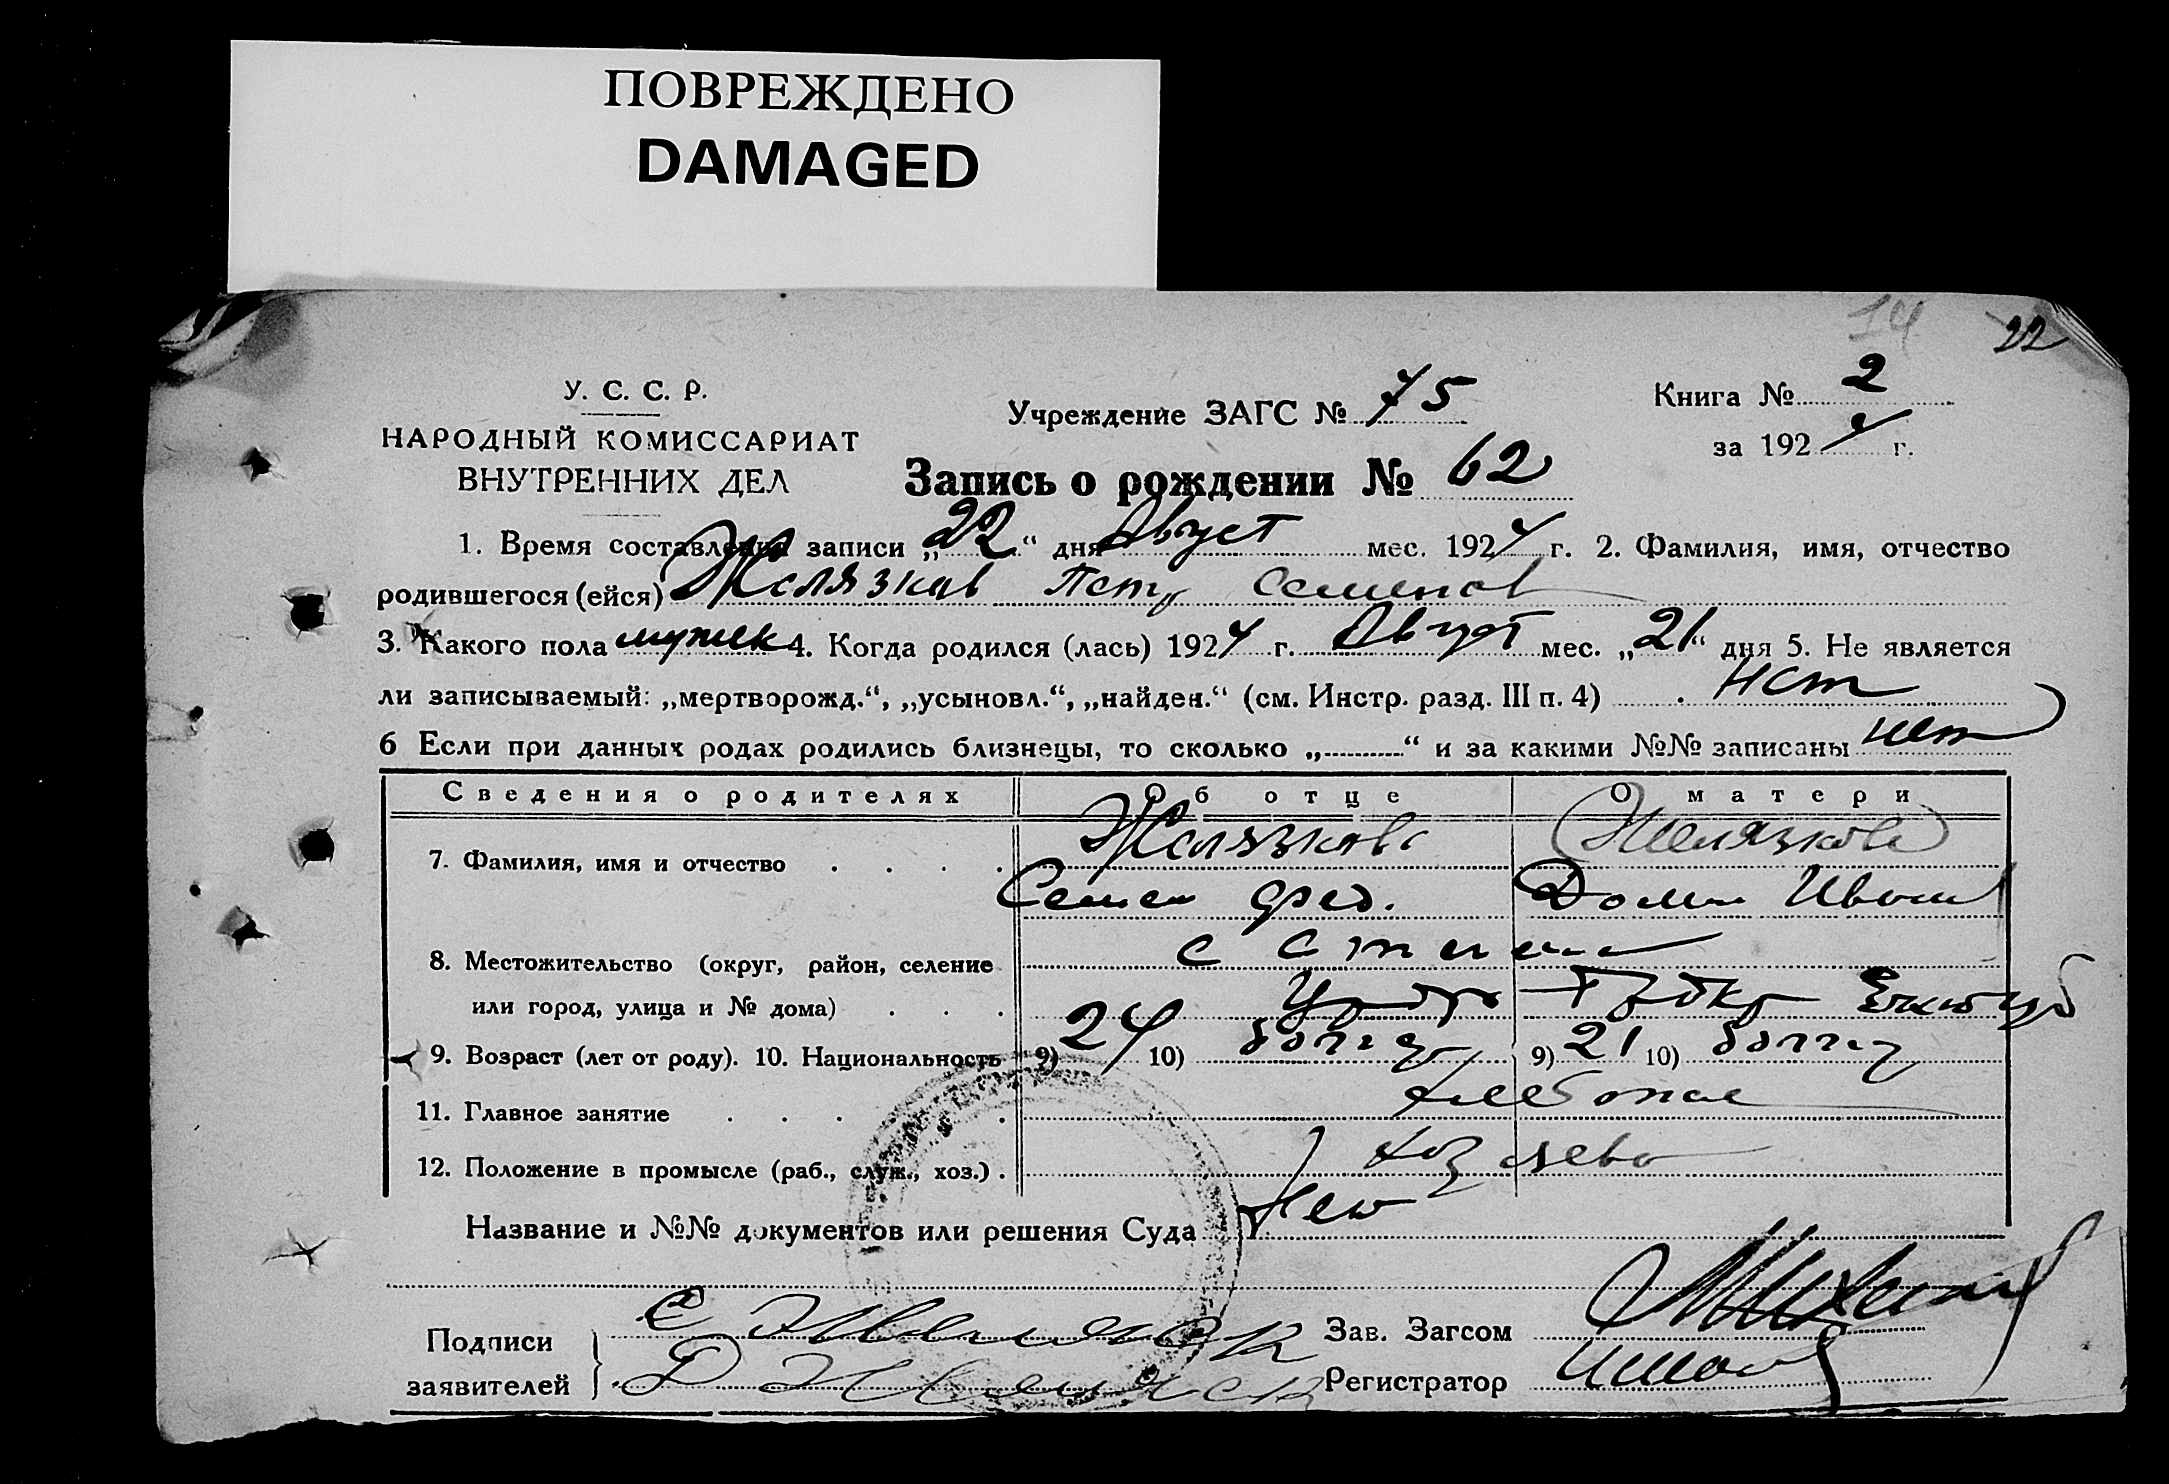 ПОВРЕЖДЕНО
DAMAGED
14 22
У. С. С. Р.
НАРОДНЫЙ КОМИССАРИАТ
ВНУТРЕННИХ ДЕЛ
Учреждение ЗАГС № 75
Книга № 2
за 1924 г.
Запись о рождении № 62
1. Время составления записи „22“ дня Август мес. 1924 г. 2. Фамилия, имя, отчество
родившегося (ейся) Желязков Петр Семенов
3. Какого пола мужск 4. Когда родился (лась) 1924 г. Август мес. „21“ дня 5. Не является
ли записываемый: „мертворожд.“, „усыновл.“, „найден.“ (см. Инстр. разд. III п. 4) нет
6 Если при данных родах родились близнецы, то сколько „ “ и за какими №№ записаны нет
Сведения о родителях Об отце О матери
7. Фамилия, имя и отчество Желязков Желязкова
Семен Фед. Иван
8. Местожительство (округ, район, селение
или город, улица и № дома)
9. Возраст (лет от роду). 10. Национальность 9) 24 10) болгар 9) 21 10) болгар
11. Главное занятие
12. Положение в промысле (раб., служ., хоз.)
Название и №№ документов или решения Суда
Подписи
заявителей
Зав. Загсом
Регистратор